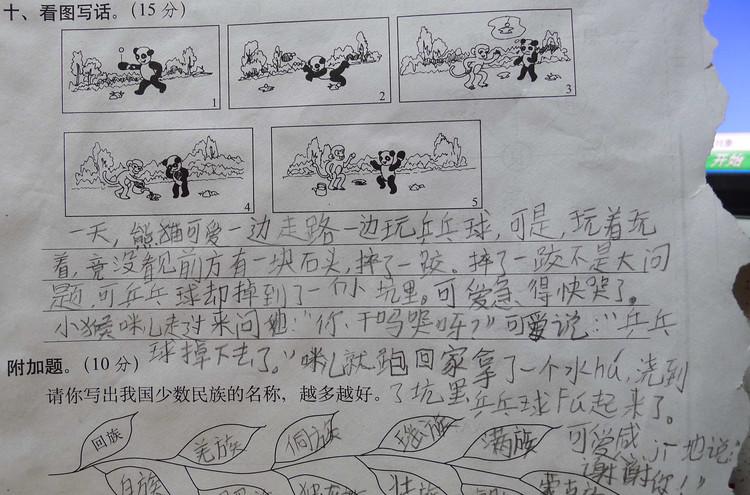 十、看图写话。(15分)
1
2
3
4
5
一天,熊猫可爱一边走路一边玩乒乓球,可是,玩着玩
着,竟没看见前方有一块石头,摔了一跤。摔了一跤不是大问
题,可乒乓球却掉到了一个小坑里。可爱急得快哭了。
小猴咪儿走过来问他:"你干吗哭呀?"可爱说:"乒乓
球掉下去了。"咪儿就跑回家拿了一个水hú,浇到
附加题。(10分)
请你写出我国少数民族的名称,越多越好。
了坑里,乒乓球Fú起来了。
可爱感 地说:
"谢谢你!"
回族
羌族
侗族
瑶族
满族
白族
壮族
开始